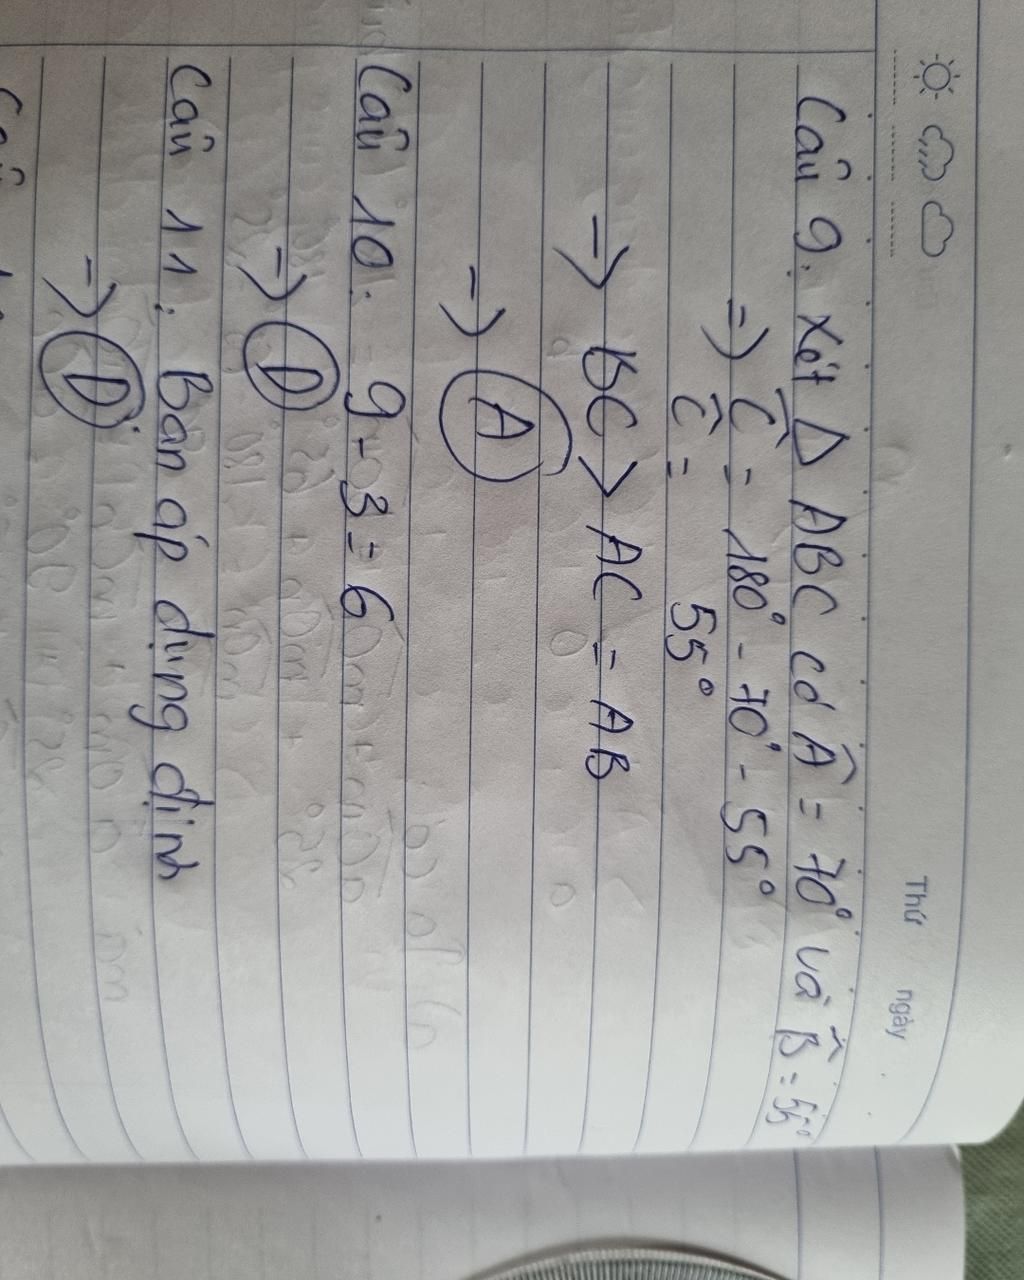 Thứ
ngày
Câu 9: Xét Δ ABC có Â = 70° và B̂ = 55°
=> Ĉ = 180° - 70° - 55°
Ĉ = 55°
-> BC > AC = AB
-> A
Câu 10: 9 - 3 = 6
-> D
Câu 11: Bạn áp dụng định
-> D